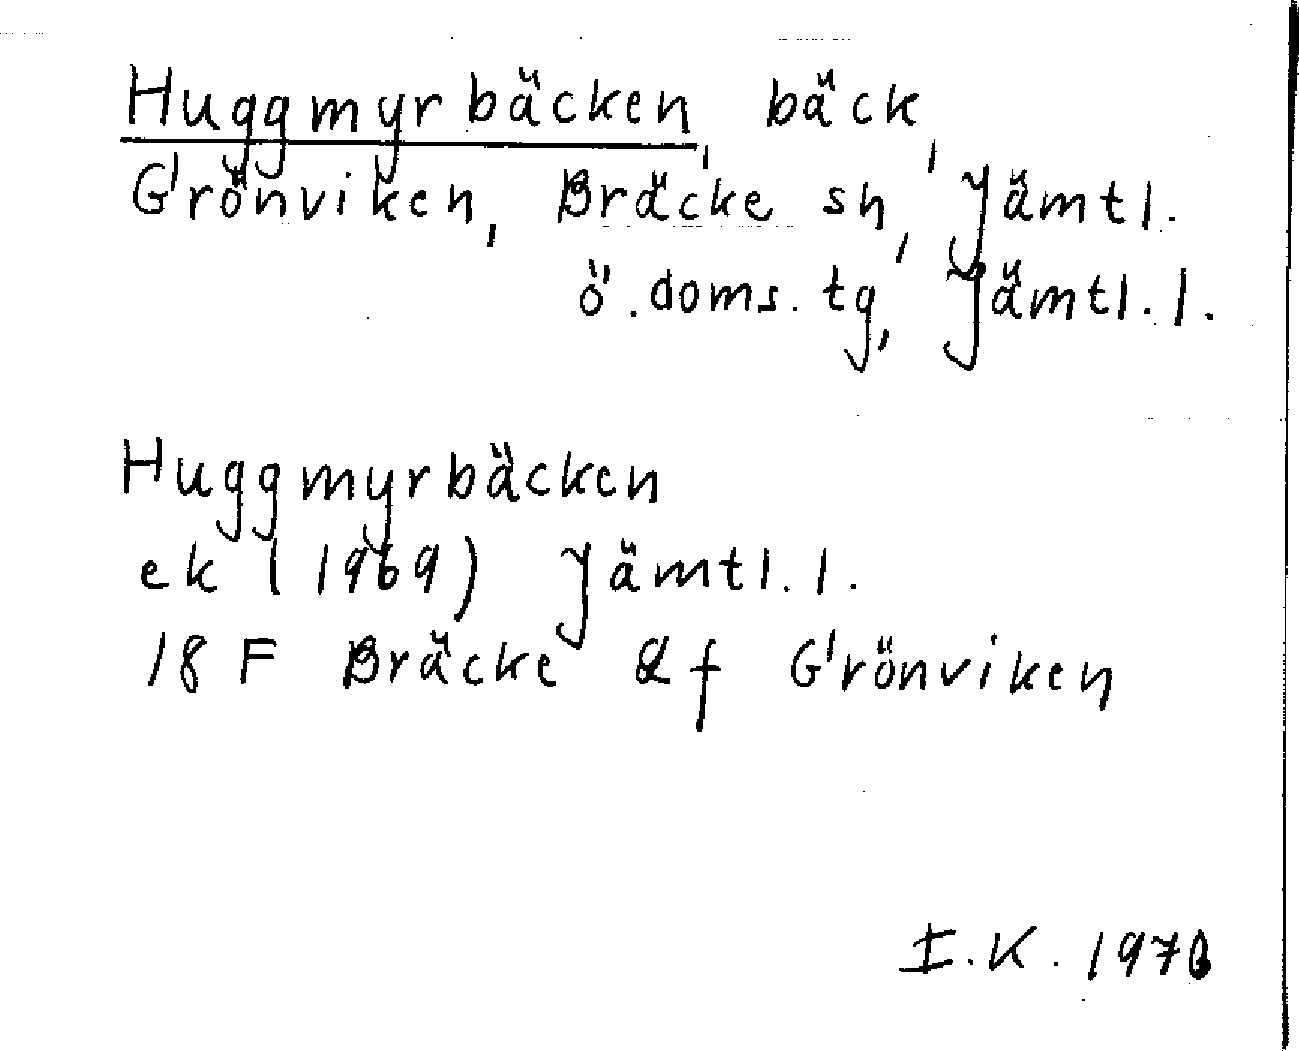 Huggmyrbäcken, bäck,
Grönviken, Bräcke sn, Jämtl.
ö. doms. tg, Jämtl. l.
Huggmyrbäcken
ek (1969) Jämtl. l.
18 F Bräcke 2f Grönviken
I. K. 1970